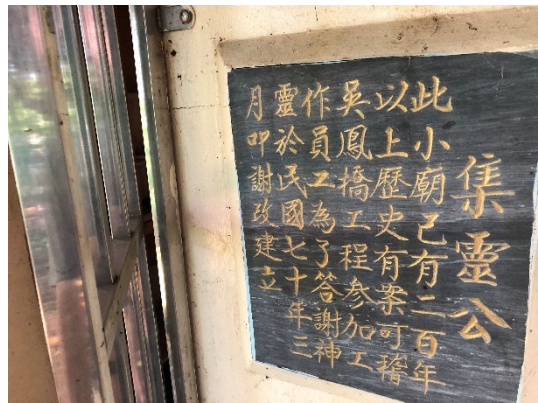 集靈公
此小廟已有二百年
以上歷史有案可稽
吳鳳橋工程參加工
作員工為了答謝神
靈於民國七十年三
月叩謝改建立